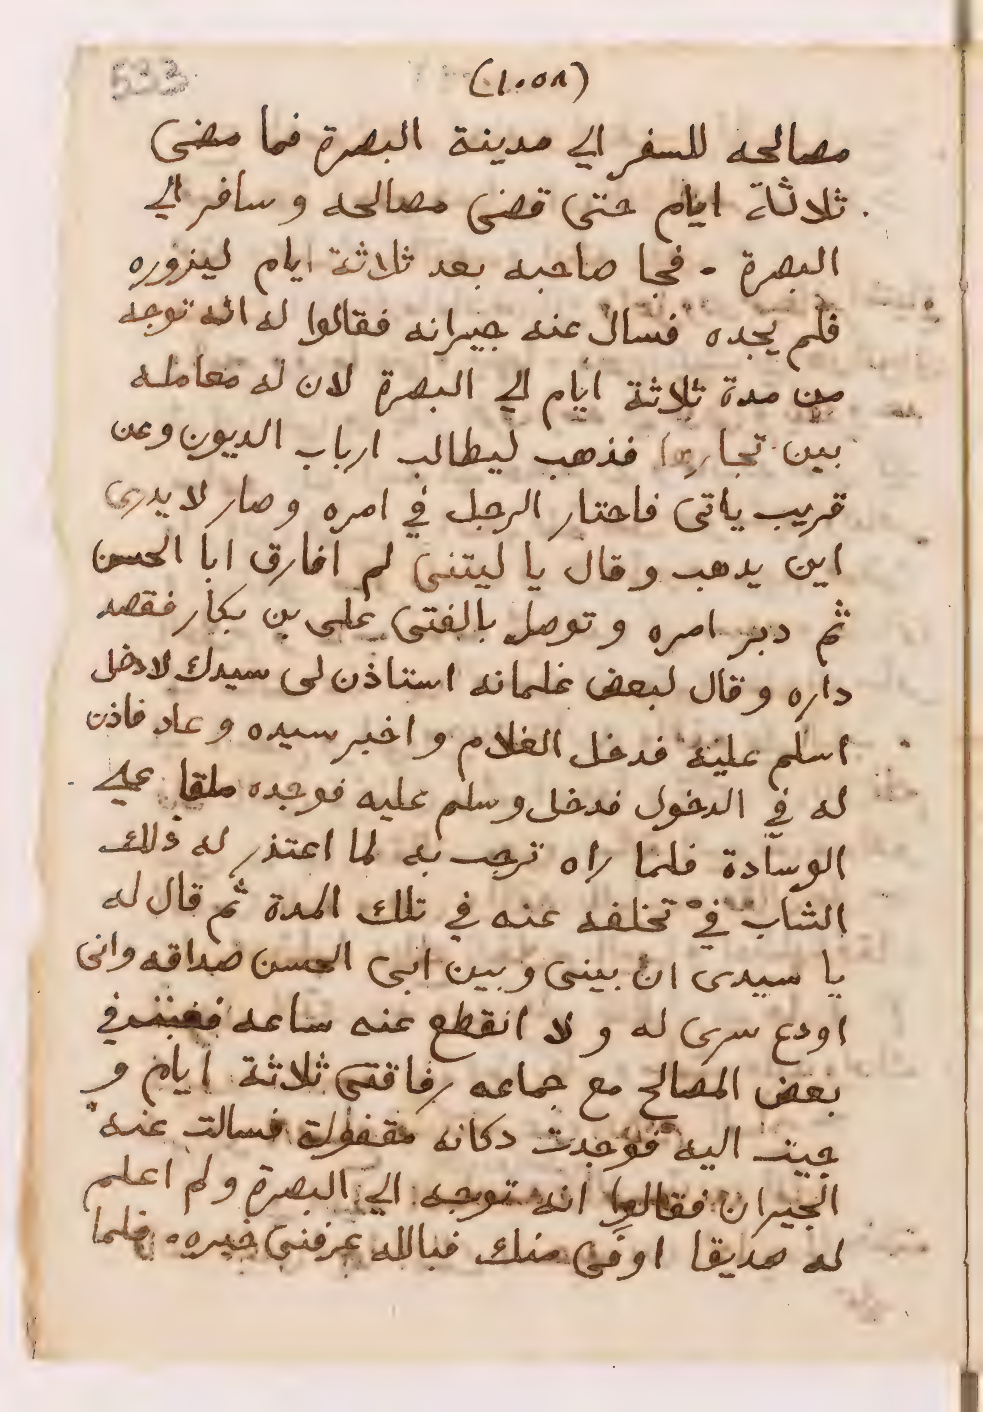 533
(١٠٥٨)
مصالحه للسفر الي مدينة البصرة فما مضى
ثلاثة ايام حتى قضى مصالحه و سافر الي
البصرة . فجا صاحبه بعد ثلاثة ايام ليزوره
فلم يجده فسال عنه جيرانه فقالوا له انه توجه
من مدة ثلاثة ايام الي البصرة لان له معامله
بين تجارها فذهب ليطالب ارباب الديون وعن
قريب ياتى فاحتار الرجل في امره و صار لا يدرى
اين يدهب و قال يا ليتنى لم افارق ابا الحسن
ثم دبر امره و توصل بالفتى على بن بكار فقصد
داره و قال لبعض غلمانه استاذن لى سيدك لادخل
اسلم عليه فدخل الغلام و اخبر سيده و عاد فاذن
له في الدخول فدخل و سلم عليه فوجده ملقا علي
الوسادة فلما راه ترحب به لما اعتذر له ذلك
الشاب في تخلفه عنه في تلك المدة ثم قال له
يا سيدى ان بينى و بين ابى الحسن صداقه وانى
اودع سرى له و لا انقطع عنه ساعه فغبت في
بعض المصالح مع جماعه رفاقتى ثلاثة ايام و
جيت اليه فوجدت دكانه مقفولة فسالت عنه
الجيران فقالوا انه توجه الي البصرة و لم اعلم
له صديقا اوفى منك فبالله عرفنى خبره . فلما